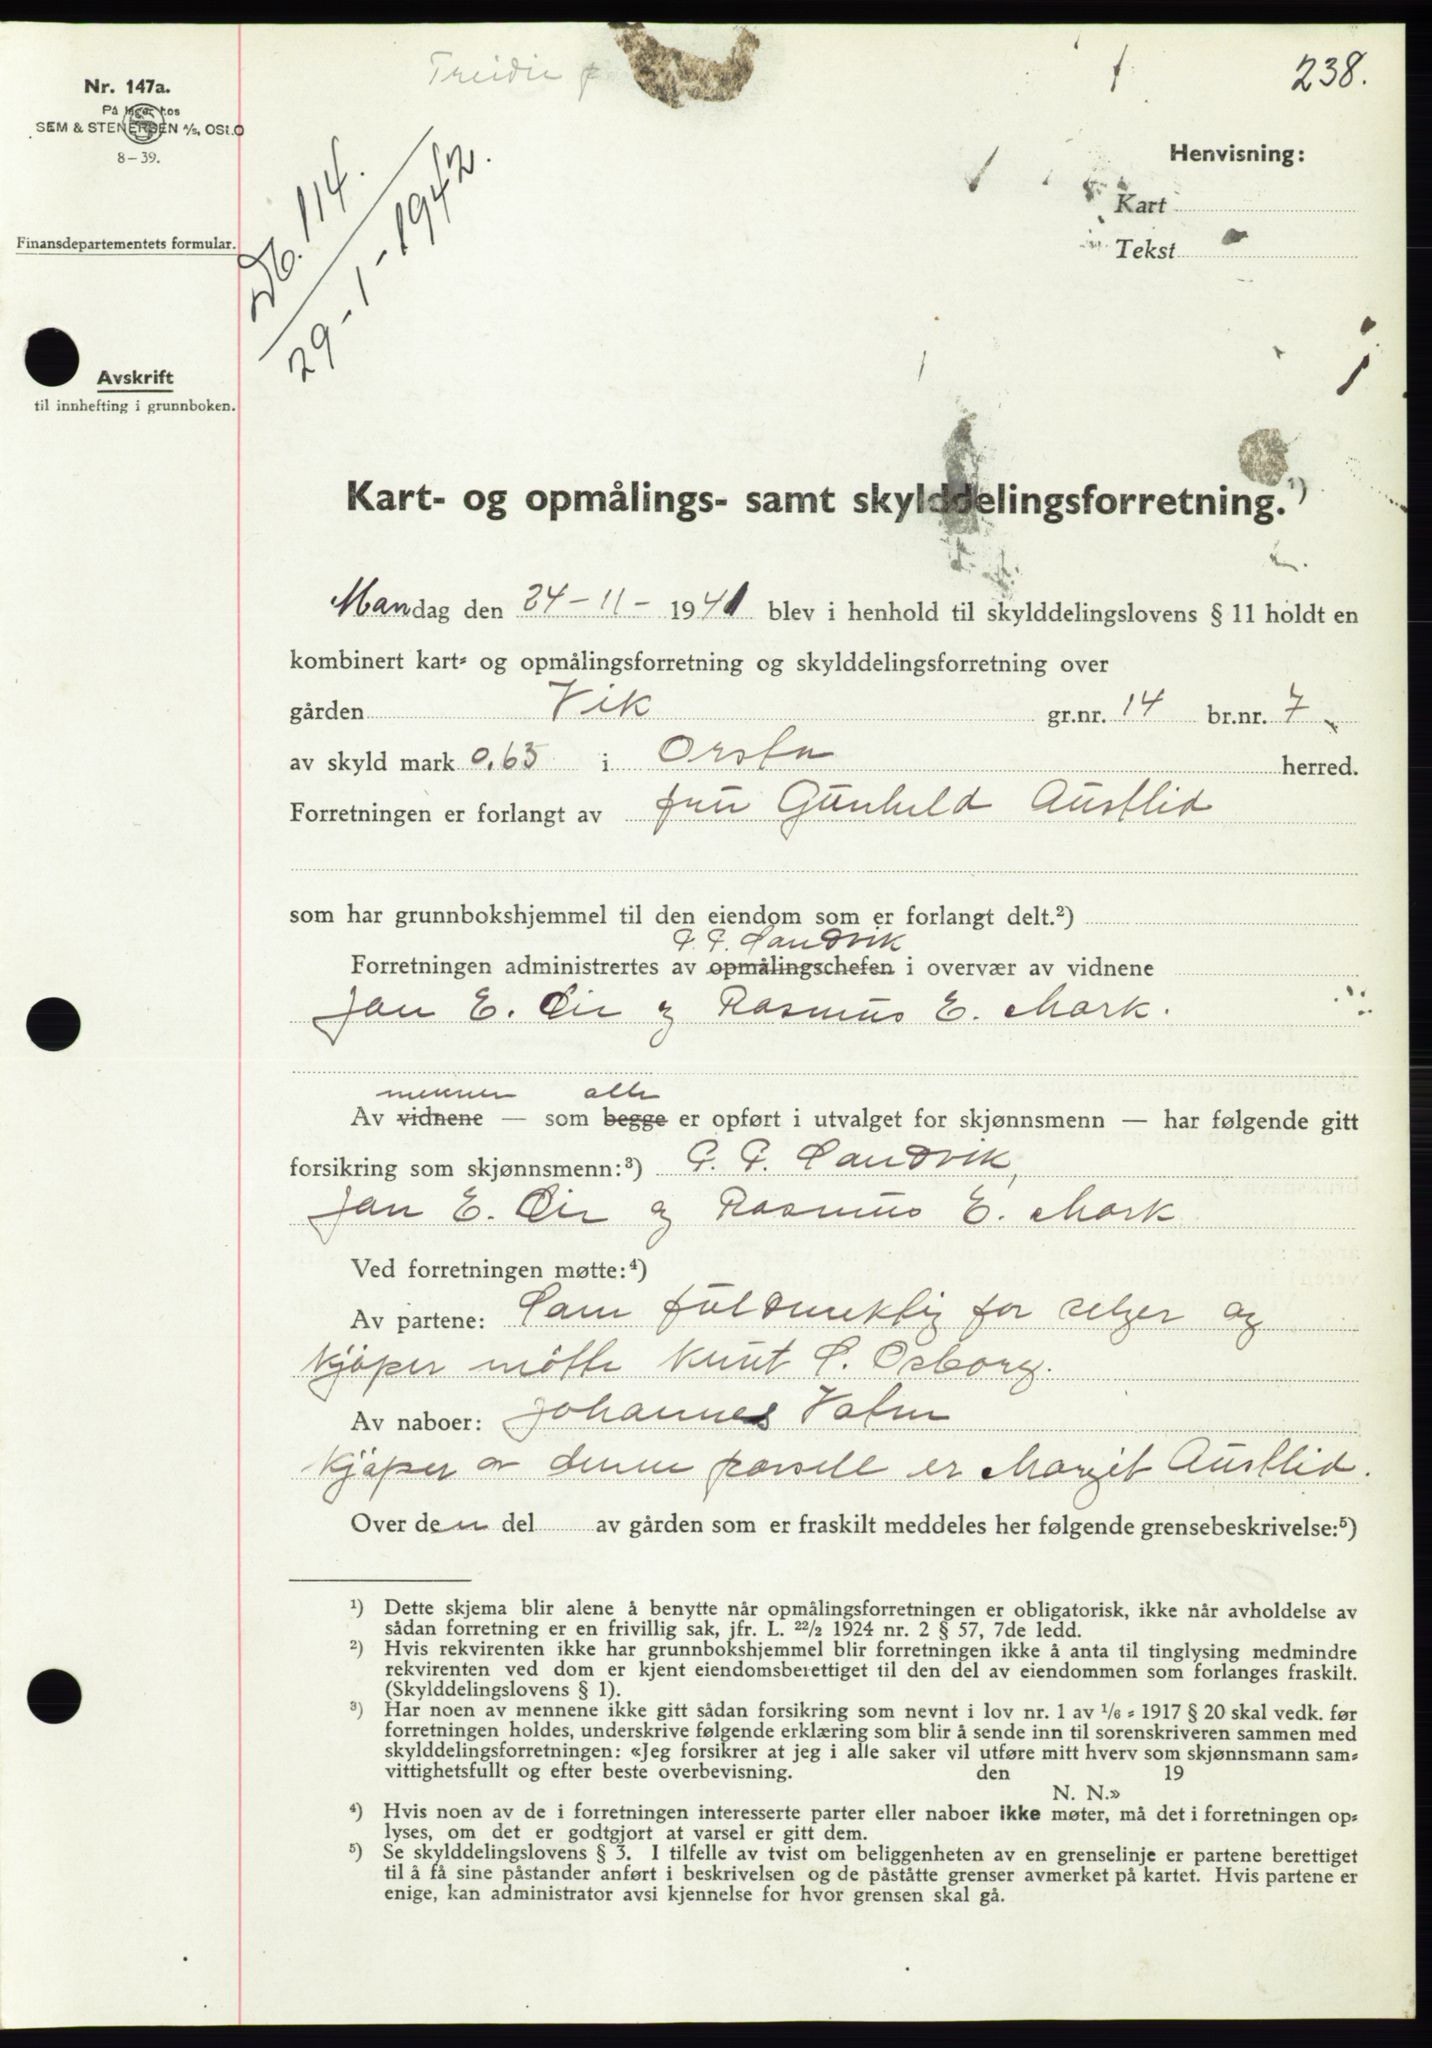 238.
Nr. 147a.
På lager hos
SEM & STENERSEN A/S, OSLO
8-39.
Finansdepartementets formular.
Avskrift
til innhefting i grunnboken.
Db. 114.
29-1-1942.
Henvisning:
Kart
Tekst
Kart- og opmålings- samt skylddelingsforretning.¹)
Mandag den 24-11- 1941 blev i henhold til skylddelingslovens § 11 holdt en
kombinert kart- og opmålingsforretning og skylddelingsforretning over
gården Vik gr.nr. 14 br.nr. 7
av skyld mark 0,63 i Ørsta herred.
Forretningen er forlangt av fru Gunhild Austlid
som har grunnbokshjemmel til den eiendom som er forlangt delt.²)
P. P. Sandvik
Forretningen administrertes av opmålingschefen i overvær av vidnene
Jan E. Øie og Rasmus E. Mork.
mennene alle
Av vidnene — som begge er opført i utvalget for skjønnsmenn — har følgende gitt
forsikring som skjønnsmenn:³) P. P. Sandvik,
Jan E. Øie og Rasmus E. Mork
Ved forretningen møtte:⁴)
Av partene: Som fuldmektig for selger og
kjøper møtte Knut S. Osborg.
Av naboer: Johannes Vatne
Kjøper av denne parsell er Margit Austlid.
Over den del av gården som er fraskilt meddeles her følgende grensebeskrivelse:⁵)
¹) Dette skjema blir alene å benytte når opmålingsforretningen er obligatorisk, ikke når avholdelse av
sådan forretning er en frivillig sak, jfr. L. ²²/₂ 1924 nr. 2 § 57, 7de ledd.
²) Hvis rekvirenten ikke har grunnbokshjemmel blir forretningen ikke å anta til tinglysing medmindre
rekvirenten ved dom er kjent eiendomsberettiget til den del av eiendommen som forlanges fraskilt.
(Skylddelingslovens § 1).
³) Har noen av mennene ikke gitt sådan forsikring som nevnt i lov nr. 1 av ¹/₆ - 1917 § 20 skal vedk. før
forretningen holdes, underskrive følgende erklæring som blir å sende inn til sorenskriveren sammen med
skylddelingsforretningen: «Jeg forsikrer at jeg i alle saker vil utføre mitt hverv som skjønnsmann sam-
vittighetsfullt og efter beste overbevisning. den 19
N. N.»
⁴) Hvis noen av de i forretningen interesserte parter eller naboer ikke møter, må det i forretningen op-
lyses, om det er godtgjort at varsel er gitt dem.
⁵) Se skylddelingslovens § 3. I tilfelle av tvist om beliggenheten av en grenselinje er partene berettiget
til å få sine påstander anført i beskrivelsen og de påståtte grenser avmerket på kartet. Hvis partene er
enige, kan administrator avsi kjennelse for hvor grensen skal gå.